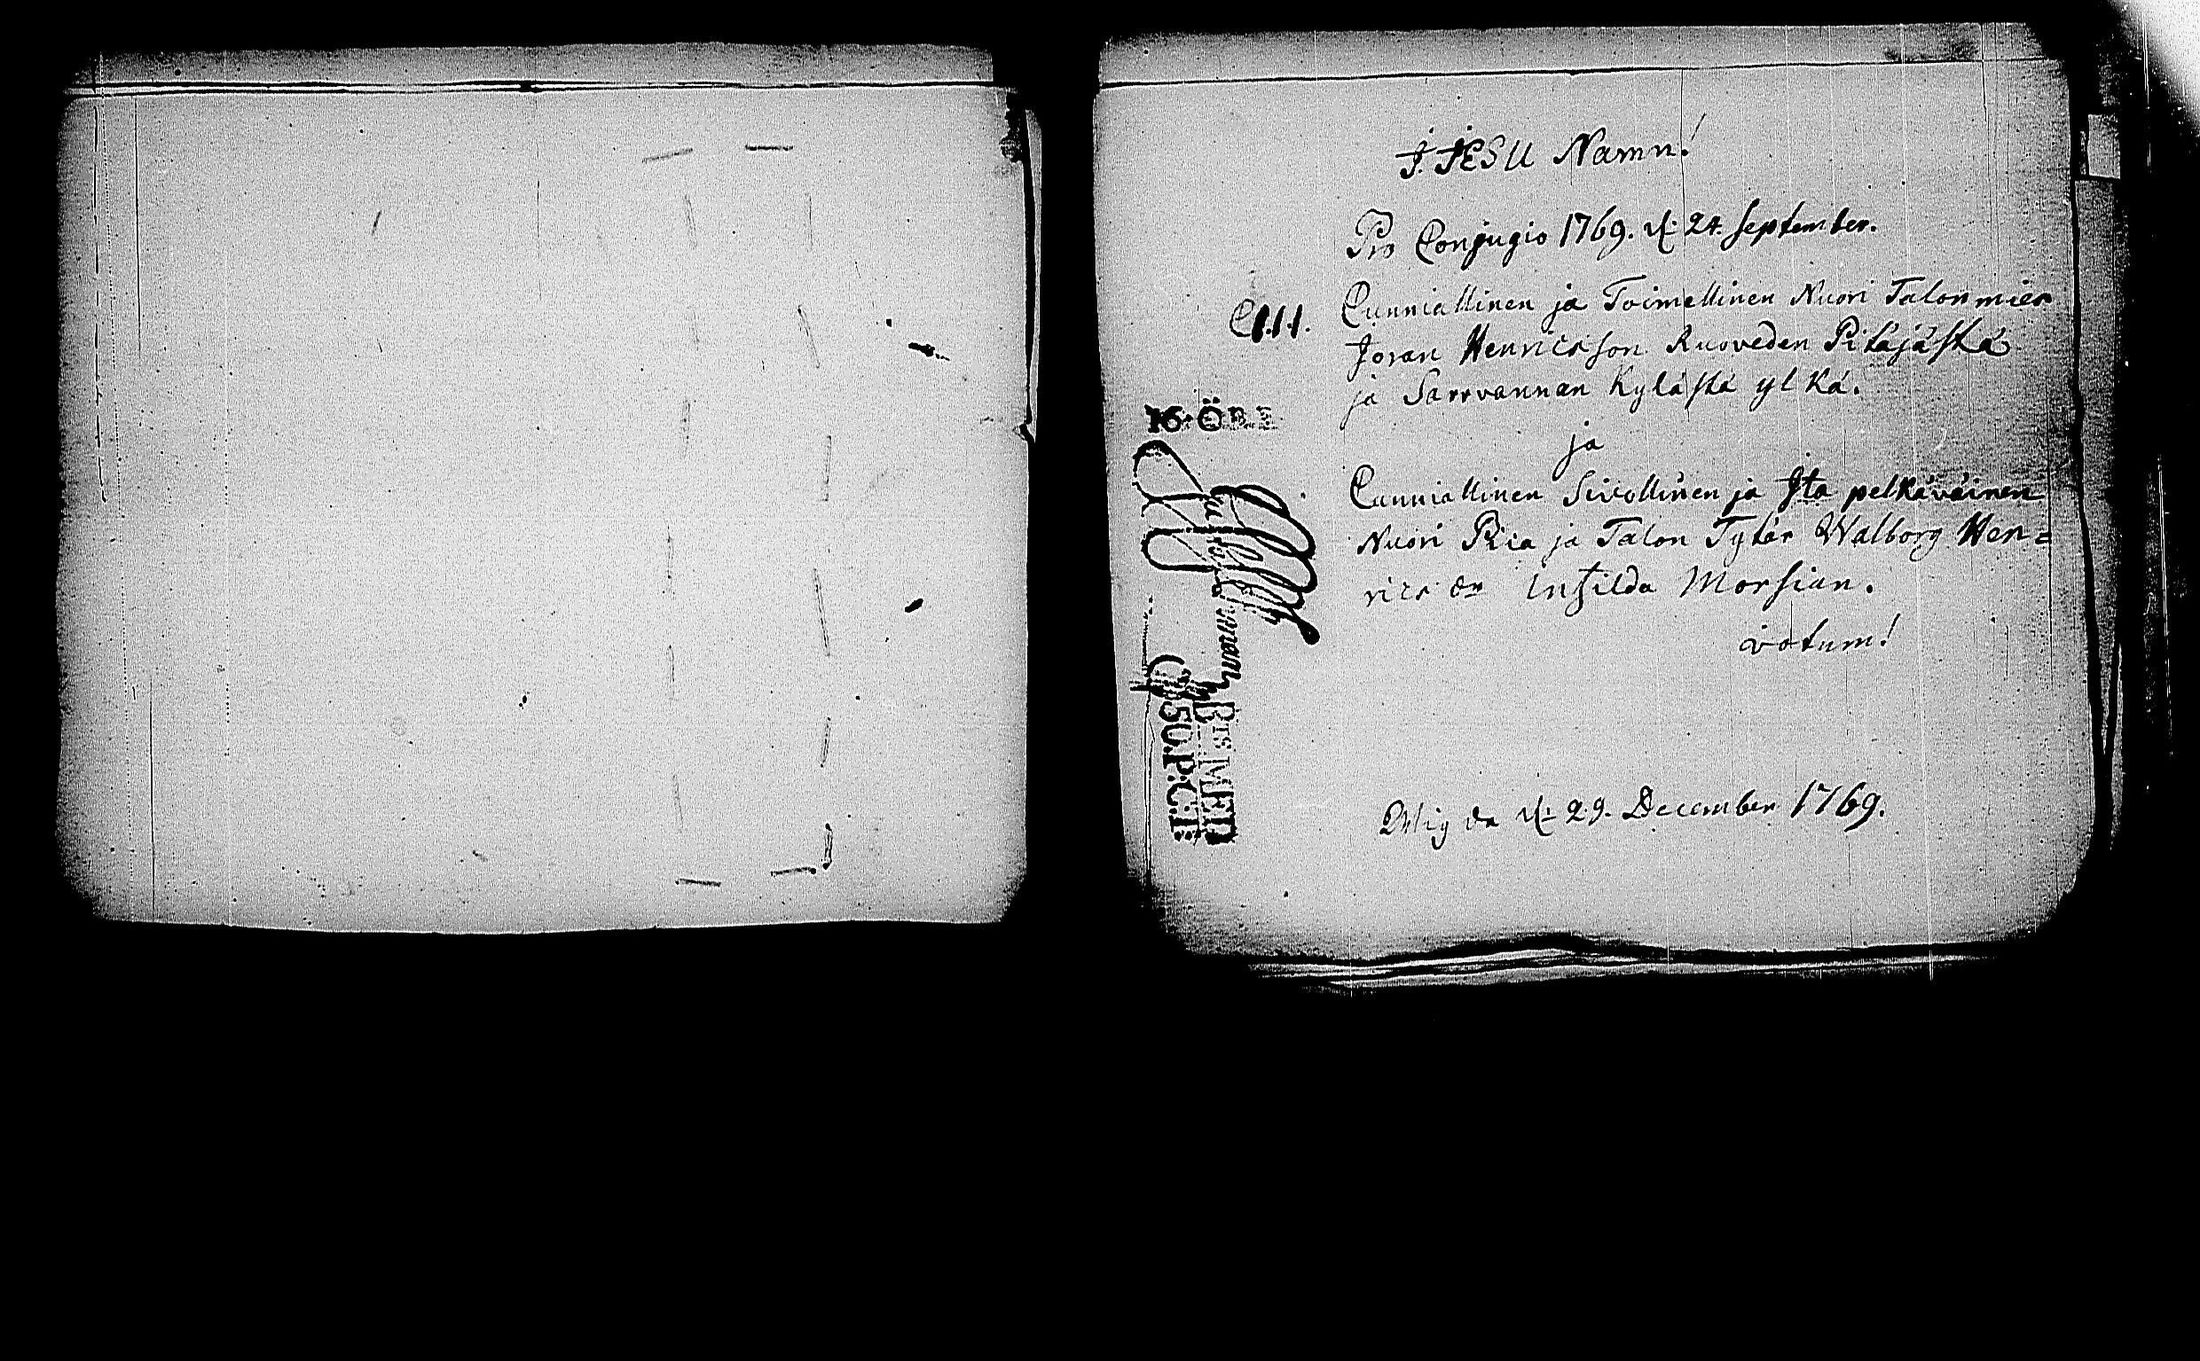 J. JESU Namn!
Pro Conjugio 1769. d: 24. September.
C.1.1.1. Cunniallinen ja Toimellinen Nuori Talonmies
Joran Henricsson Ruoveden Pitäjästä
ja Sarvannan Kylästä ylkä.
ja
Cunniallinen Sivollinen ja Jta pelkäväinen
Nuori Piia ja Talon Tytär Walborg Hen=
rics dr Morsian.
votum!
Wig da d: 29. December 1769.
16 ÖRE
BTS MED
50.P:C:T